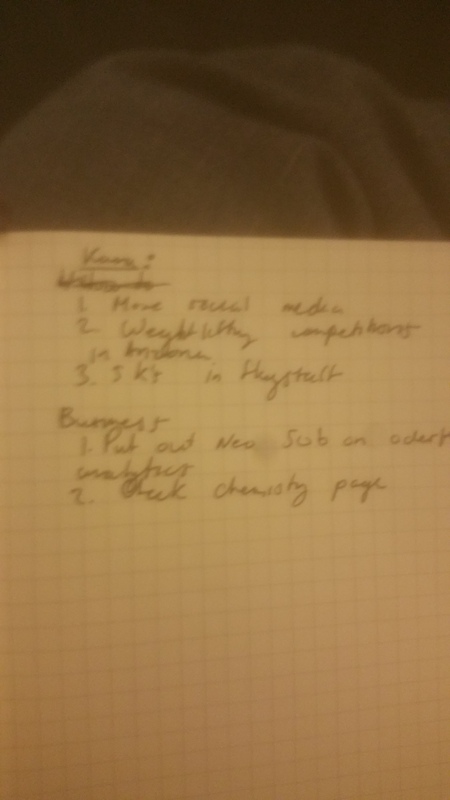 1. More social media
2. Weightlifting competitions
in Arizona
3. 5 K's in Flagstaff
Business
1. Put out Neo Sub on
analytics
2. Check chemistry page